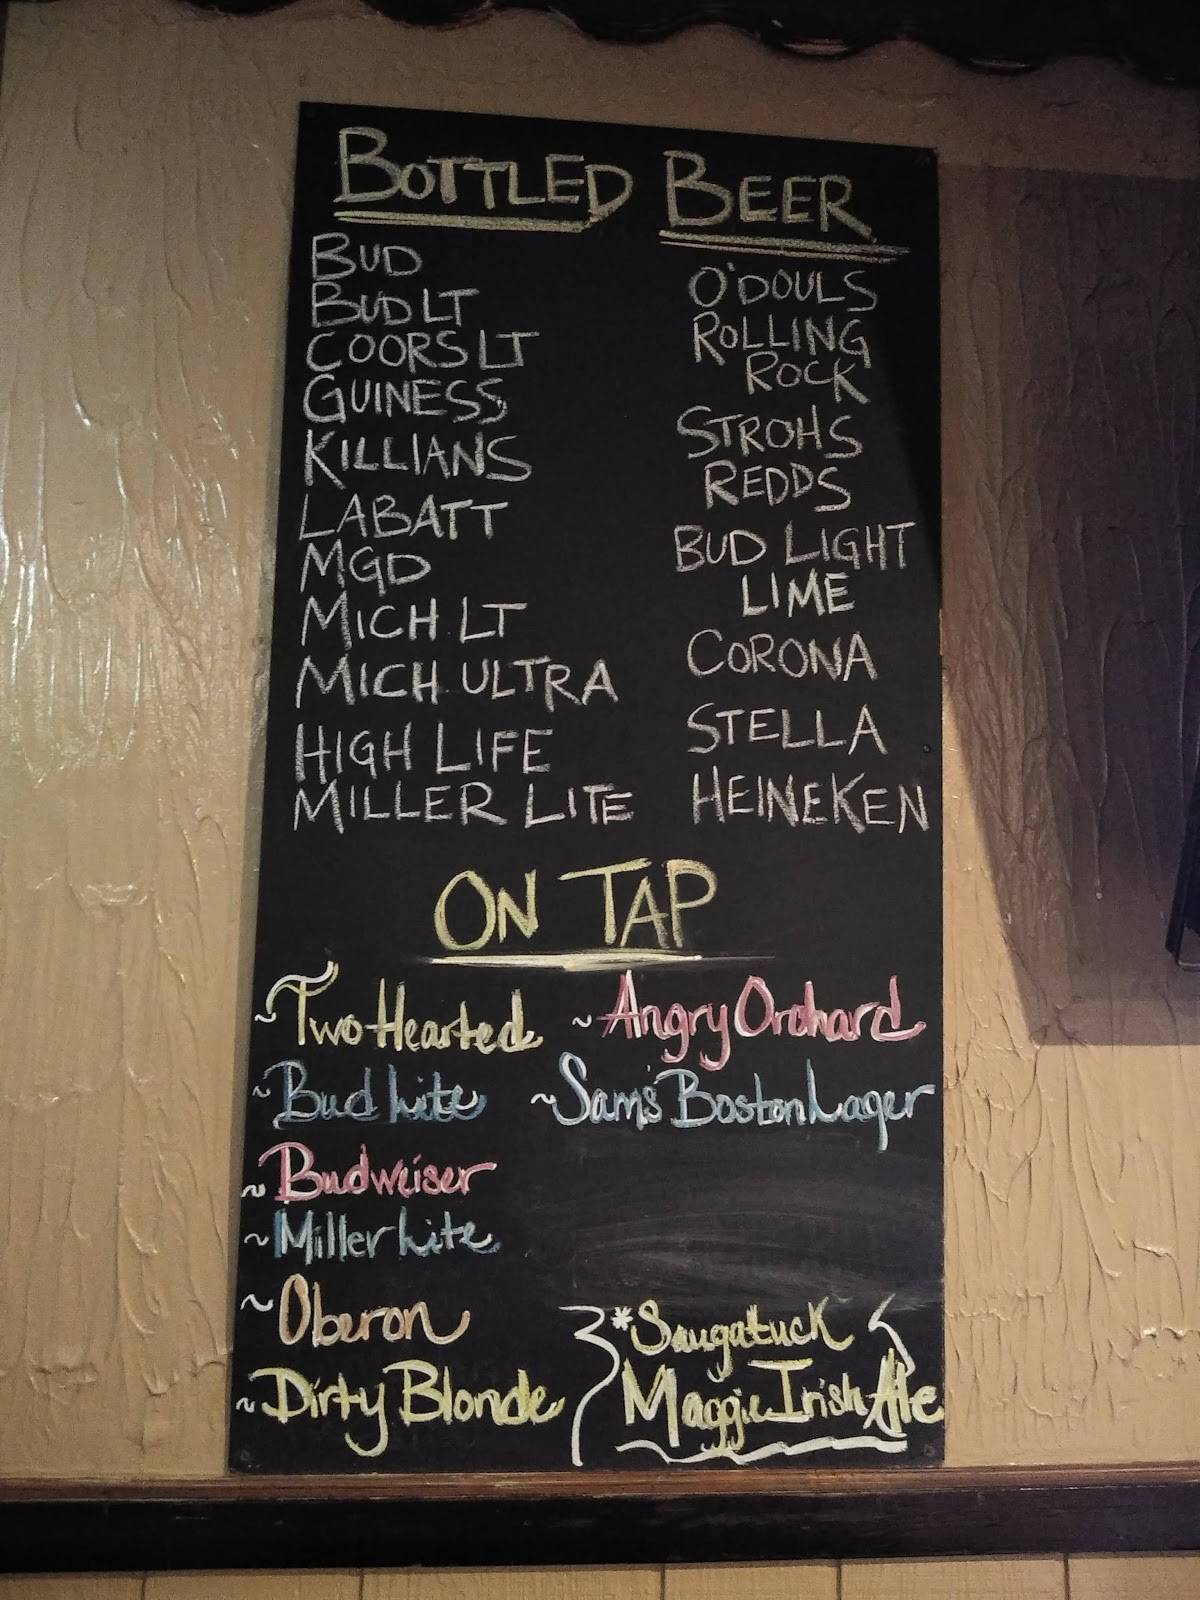 BOTTLED BEER
BUD
BUD LT
COORS LT
GUINESS
KILLIANS
LABATT
MGD
MICH LT
MICH ULTRA
HIGH LIFE
MILLER LITE
O'DOULS
ROLLING
ROCK
STROHS
REDDS
BUD LIGHT
LIME
CORONA
STELLA
HEINEKEN
ON TAP
~Two Hearted
~Bud Lite
~Budweiser
~Miller Lite
~Oberon
~Dirty Blonde
~Angry Orchard
~Sam's Boston Lager
*Saugatuck
Maggie Irish Ale